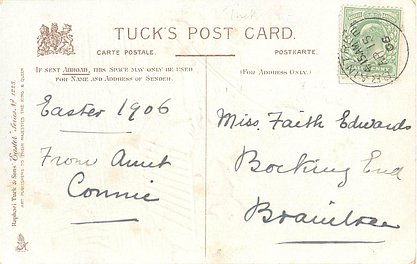 Tuck
TUCK'S POST CARD.
CARTE POSTALE. POSTKARTE.
IF SENT ABROAD, THIS SPACE MAY ONLY BE USED
FOR NAME AND ADDRESS OF SENDER.
(FOR ADDRESS ONLY.)
Easter 1906
From Aunt
Connie
Miss Faith Edwards
Bocking End
Braintree
Raphael Tuck & Sons "Easter" Series No 1223.
ART PUBLISHERS TO THEIR MAJESTIES THE KING & QUEEN